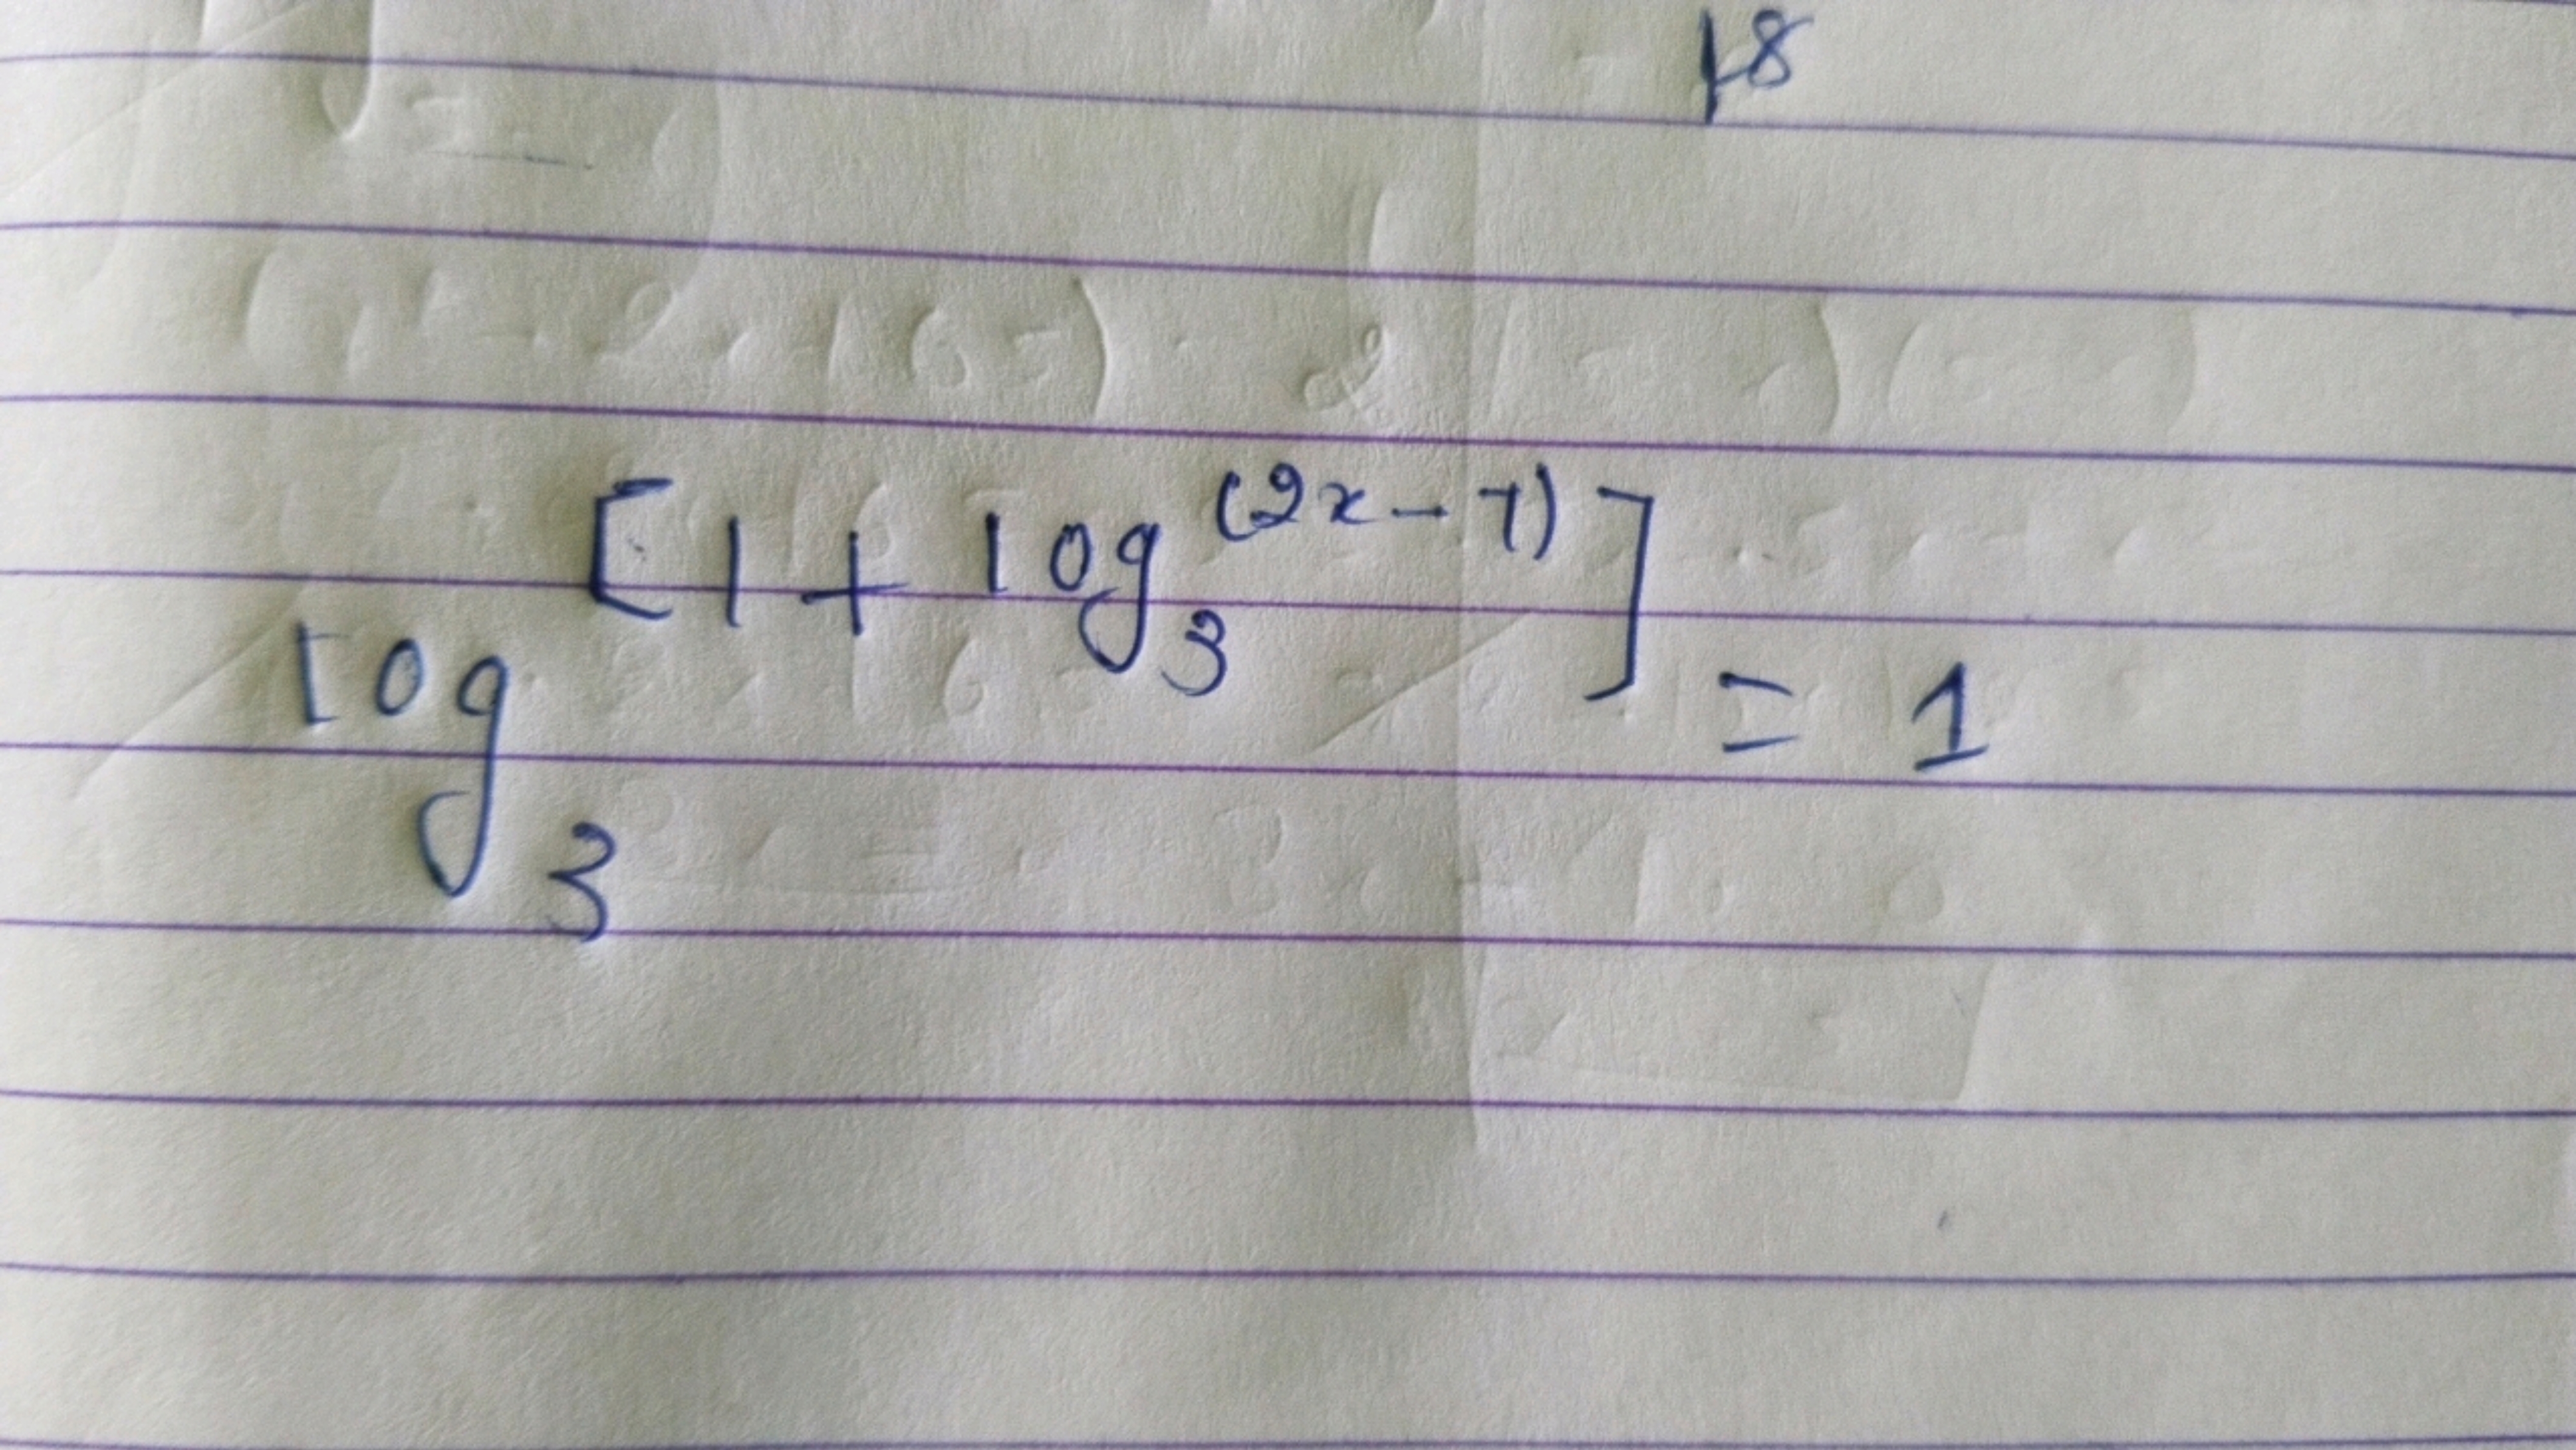 18
log₃ [1 + log₃ (2x - 7)] = 1